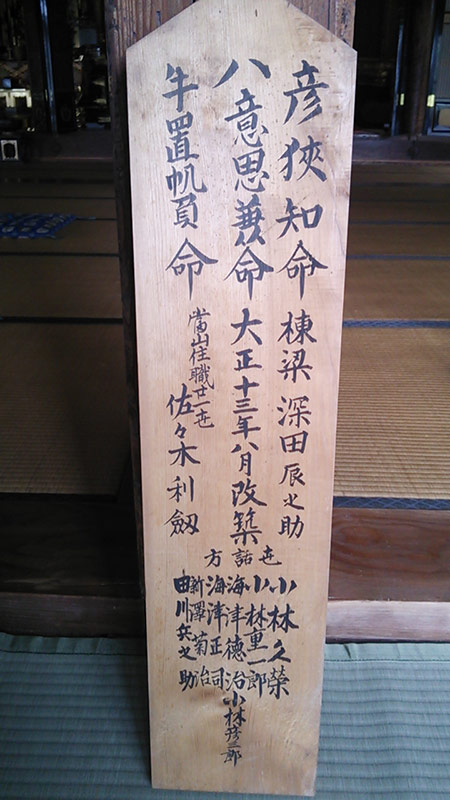 彦狹知命 棟梁 深田辰之助
八意思兼命 大正十三年八月改築
手置帆負命 當山住職廿一世 佐々木利劔
世話方
小林久榮
小林重一郎
海津德治
海津正司
新澤菊治
由川兵之助
小林彦三郎